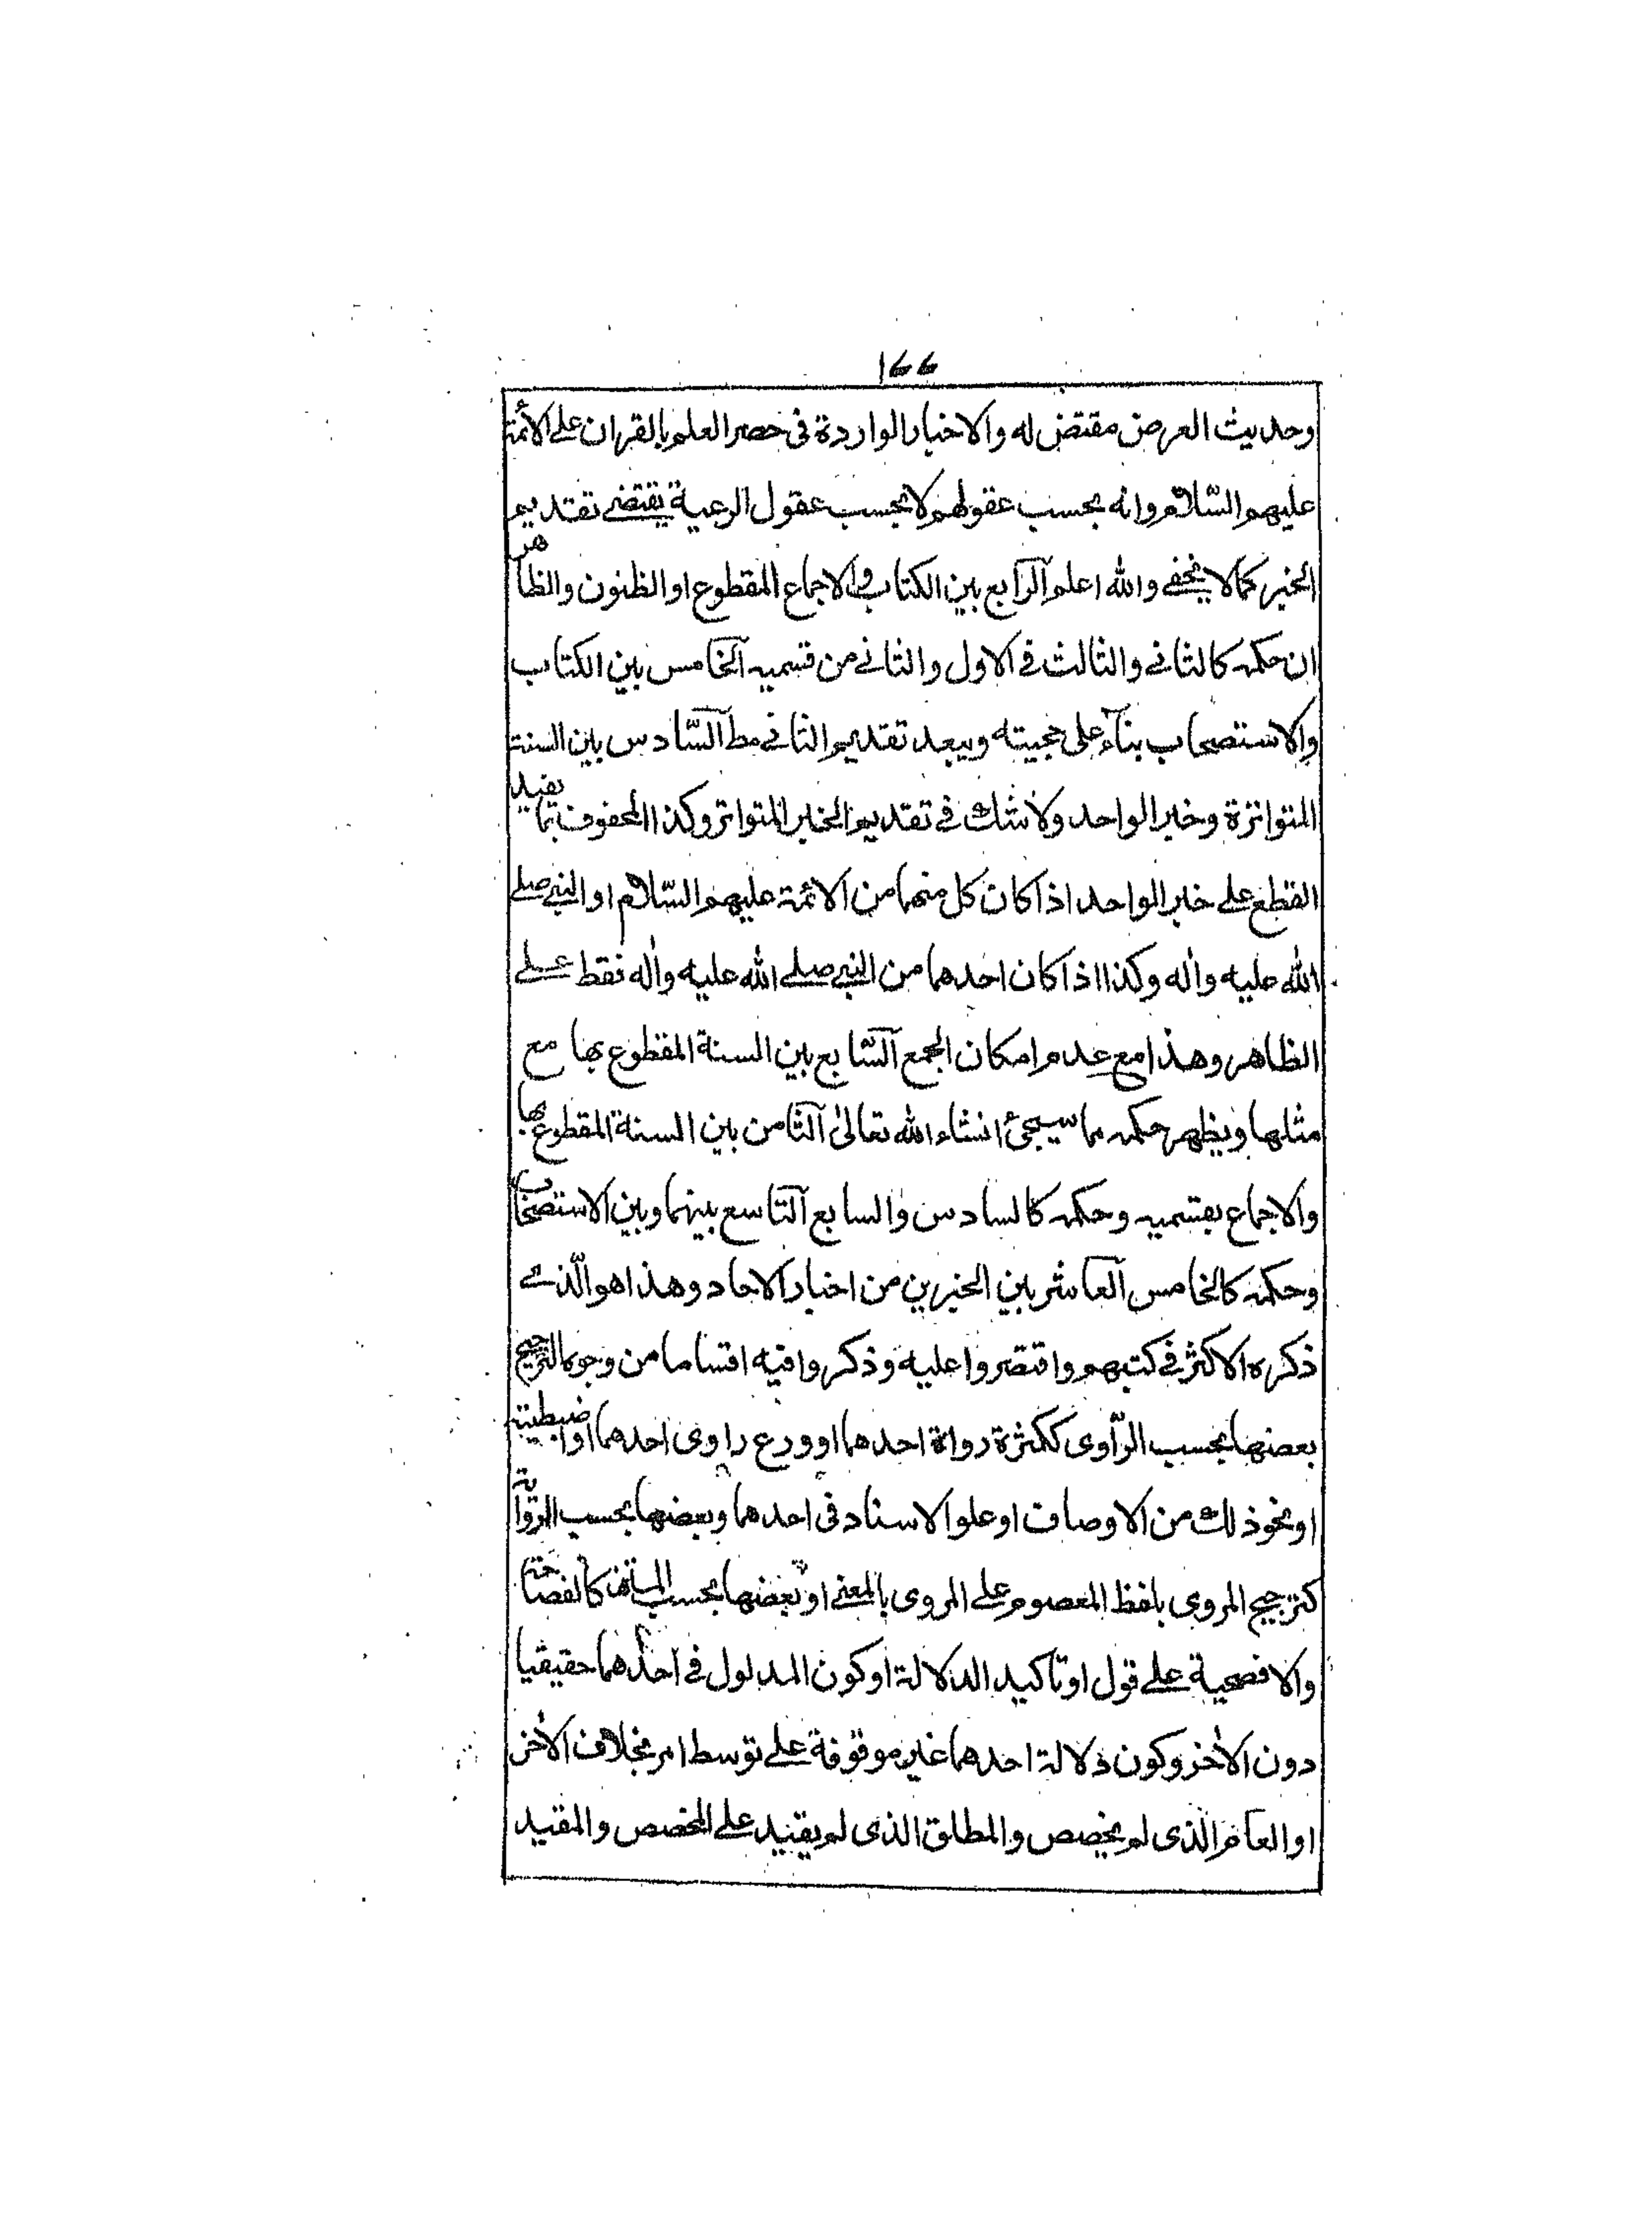 ١٦٦
وحديث العرض مقتض له والاخبار الواردة فى حصر العلم بالقران على الأئمة
عليهم السّلام وانه بحسب عقولهم لا بحسب عقول الرعية يقتضے تقديم
الخبر كما لا يخفے والله اعلم آلرابع بين الكتاب والاجماع المقطوع او المظنون والظاهر
ان حكمه كالثانے والثالث فے الاول والثانے من قسميه آلخامس بين الكتاب
والاستصحاب بناء على حجيته ويبعد تقديم الثانے مط آلسّادس بين السنة
المتواترة وخبر الواحد ولا شك فے تقديم الخبر المتواتر وكذا المحفوف بما يفيد
القطع علے خبر الواحد اذا كان كل منهما من الائمة عليهم السّلام او النبے صلے
الله عليه واله وكذا اذا كان احدهما من النبے صلے الله عليه واله فقط علے
الظاهر وهذا مع عدم امكان الجمع آلسّابع بين السنة المقطوع بها مع
مثلها ويظهر حكمه مما سيجئ انشاء الله تعالىٰ آلثامن بين السنة المقطوع بها
والاجماع بقسميه وحكمه كالسادس والسابع آلتاسع بينهما وبين الاستصحاب
وحكمه كالخامس آلعاشر بين الخبرين من اخبار الاحاد وهذا هو الّذے
ذكره الاكثر فے كتبهم واقتصروا عليه وذكروا فيه اقساما من وجوه الترجيح
بعضها بحسب الرّاوى ككثرة رواة احدهما او ورع راوى احدهما او اضبطيته
او نحو ذلك من الاوصاف او علو الاسناد فى احدهما وبعضها بحسب الرّواية
كترجيح المروى بلفظ المعصوم علے المروى بالمعنے او بعضها بحسب المتن كالفصاحة
والافصحية علے قول او تاكيد الدلالة او كون المدلول فے احدهما حقيقيا
دون الأخر وكون دلالة احدهما غير موقوفة علے توسط امر بخلاف الأخر
او العام الّذى لم يخصص والمطلق الذى لم يقيد علے المخصص والمقيد